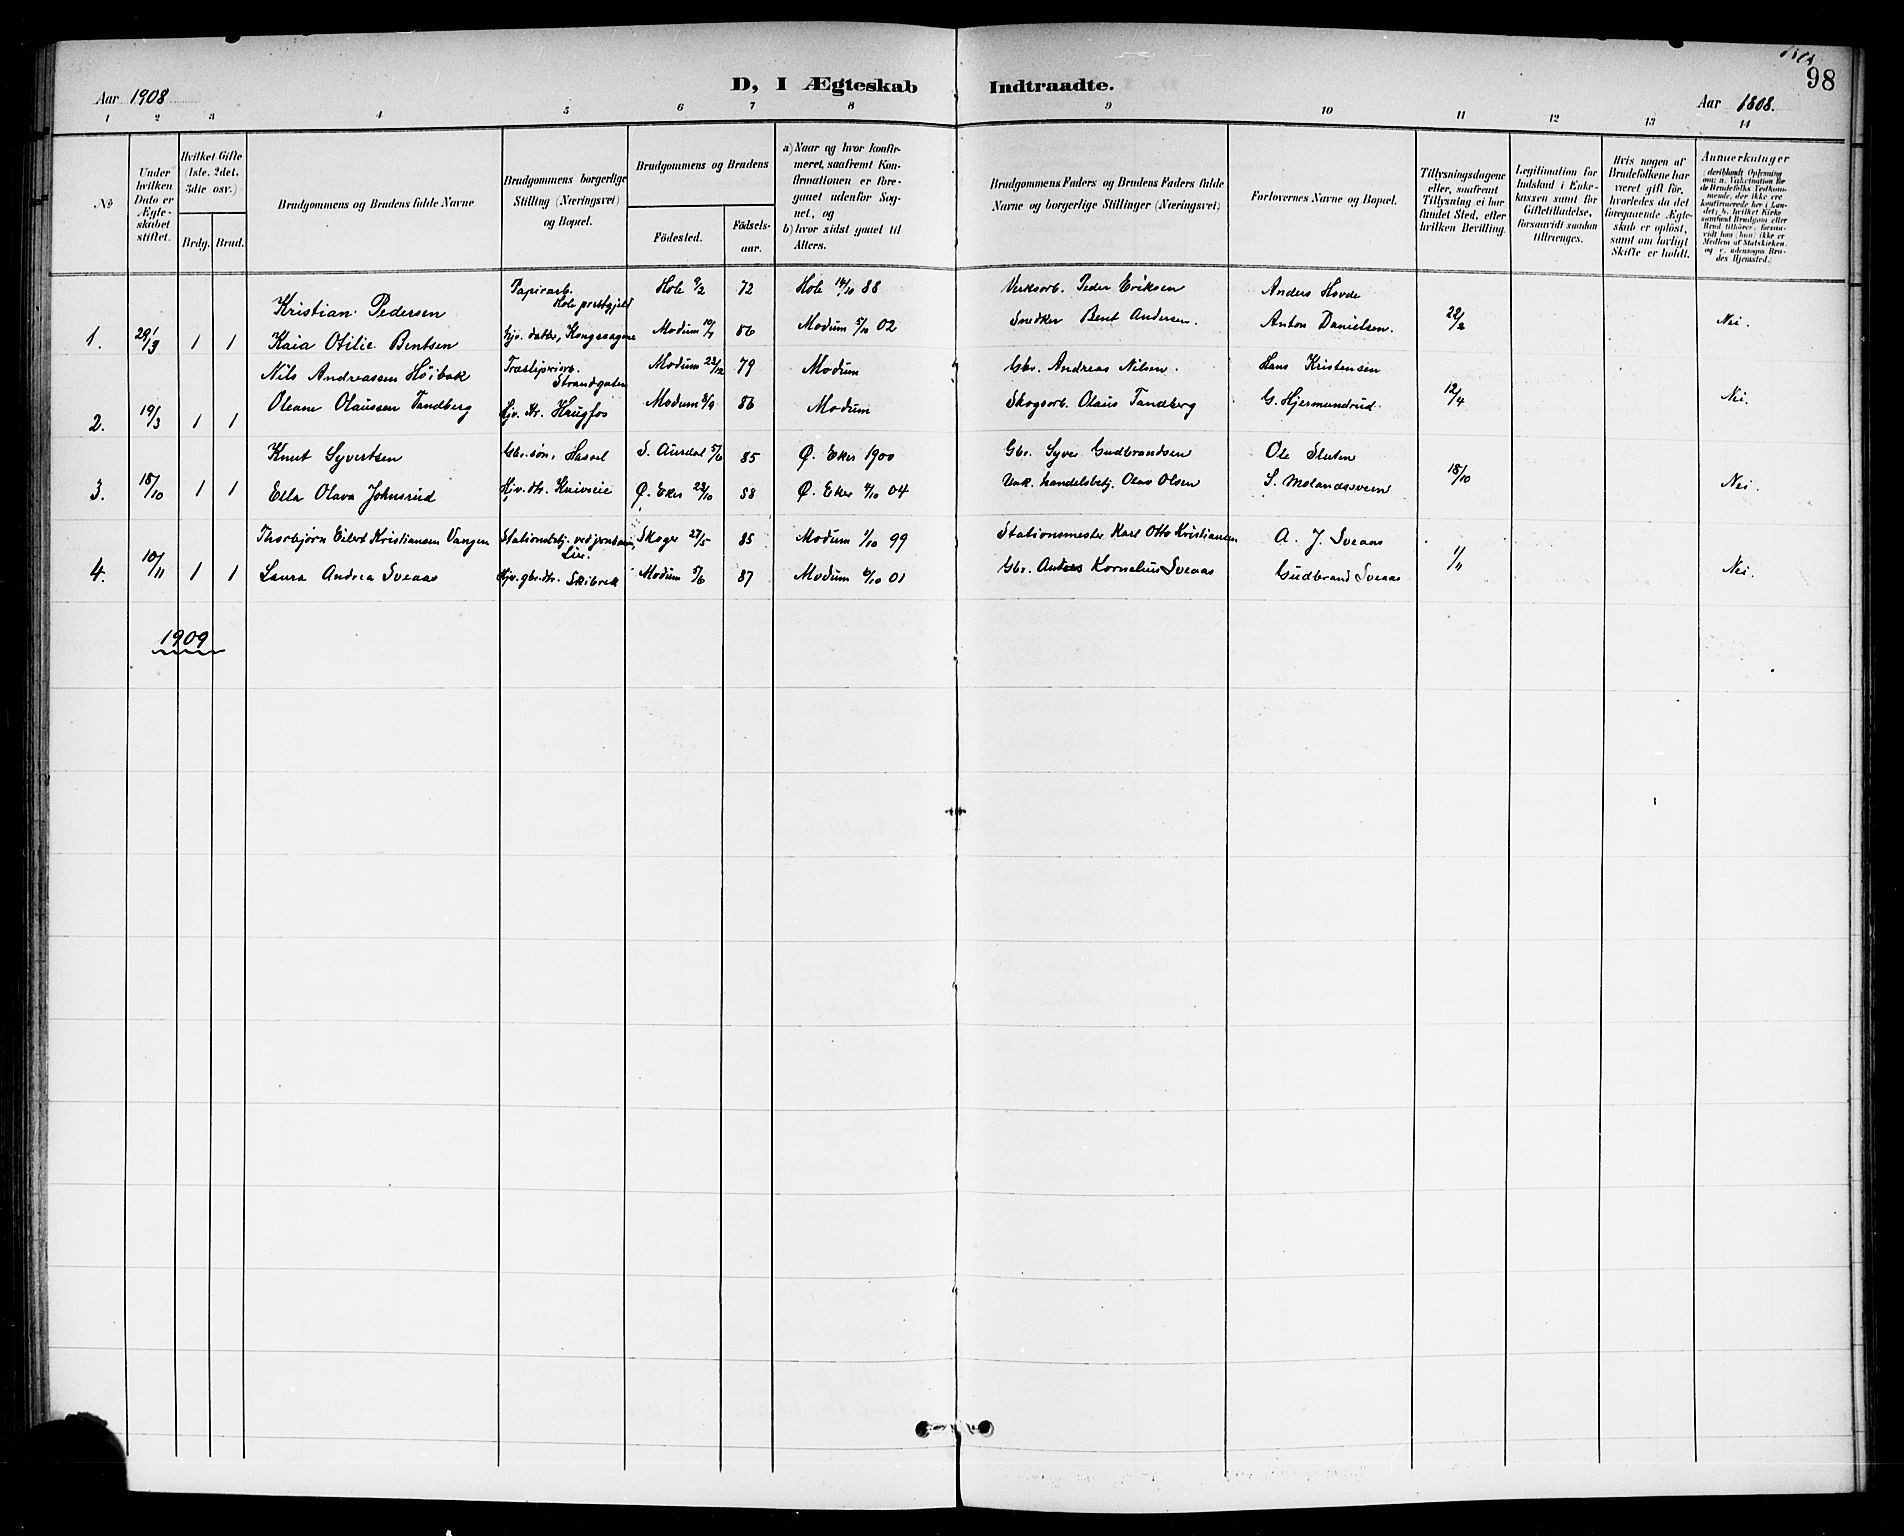 98
Aar 1908
D, I Ægteskab Indtraadte.
Aar 1808.
1 2 3 4 5 6 7 8 9 10 11 12 13 14
No
Under hvilken Dato er Ægte-skabet stiftet.
Hvilket Gifte (1ste, 2det, 3die osv.)
Brdg. Brud.
Brudgommens og Brudens fulde Navne
Brudgommens borgerlige Stilling (Næringsvei) og Bopæl.
Brudgommens og Brudens
Födested.
Födsels-aar.
a) Naar og hvor konfir-meret, saafremt Kon-firmationen er fore-gaaet udenfor Sog-net, og
b) hvor sidst gaaet til Alters.
Brudgommens Faders og Brudens Faders fulde Navne og borgerlige Stillinger (Næringsvei)
Forlovernes Navne og Bopæl.
Tillysningsdagene eller, saafremt Tillysning ei har fundet Sted, efter hvilken Bevilling.
Legitimation for Indskud i Enke-kassen samt for Giftetilladelse, forsaavidt saadan tiltrænges.
Hvis nogen af Brudefolkene har været gift för, hvorledes da det foregaaende Ægte-skab er oplöst, samt om lovligt Skifte er holdt.
Anmerkninger
Kristian Pedersen Papirarb. Hole prestgjeld Hole 9/2 72 Hole 14/10 88 Verksarb. Peder Eriksen Anders Hovde
1. 29/3 1 1 Kaia Otilie Bentsen Hjv. datter, Kongssagene Modum 10/7 86 Modum 5/10 02 Snedker Bent Andersen. Anton Danielsen. 22/2 Nei.
Nils Andreassen Höibak Træsliperiarb. Strandgaten Modum 23/12 79 Modum Gbr. Andreas Nilsen. Hans Kristensen
2. 19/3 1 1 Oleane Olaussen Tandberg Hjv. dtr. Haugfos Modum 3/9 86 Modum Skogsarb. Olaus Tandberg G. Hjermundrud. 12/4 Nei.
Knut Syvertsen Gbr.søn, Hassel S. Aurdal 5/6 85 Ø. Eker 1900 Gbr. Syver Gudbrandsen Ole Sluten
3. 18/10 1 1 Ella Olava Johnsrud Hjv.dtr. Knivseie Ø. Eker 23/10 88 Ø. Eker 4/10 04 Unk. handelsbetj. Olav Olsen S. Molandssveen 18/10 Nei.
Thorbjørn Eilert Kristiansen Vangen Stationsbetj. ved jernbanen, Lier. Skoger 27/5 85 Modum 1/10 99 Stationsmester Karl Otto Kristiansen A. J. Sveaas
4. 10/11 1 1 Laura Andrea Sveaas Hjv.gbr.dtr. Skibrek Modum 5/6 87 Modum 6/10 01 Gbr. Anders Kornelius Sveaas Gudbrand Sveaas 1/11 Nei.
1909